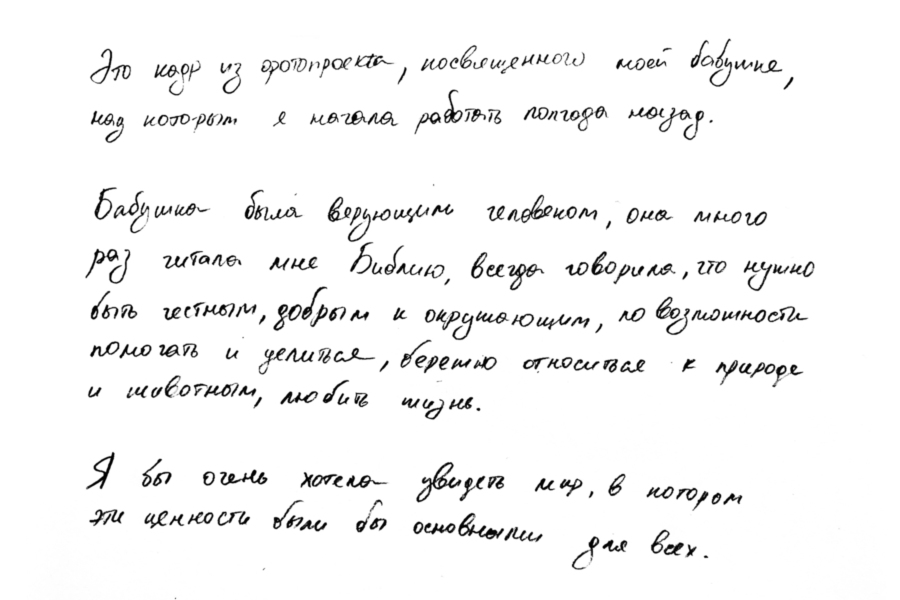 Это кадр из фотопроекта, посвященного моей бабушке,
над которым я начала работать полгода назад.
Бабушка была верующим человеком, она много
раз читала мне Библию, всегда говорила, что нужно
быть честным, добрым к окружающим, по возможности
помогать и делиться, бережно относиться к природе
и животным, любить жизнь.
Я бы очень хотела увидеть мир, в котором
эти ценности были бы основными для всех.